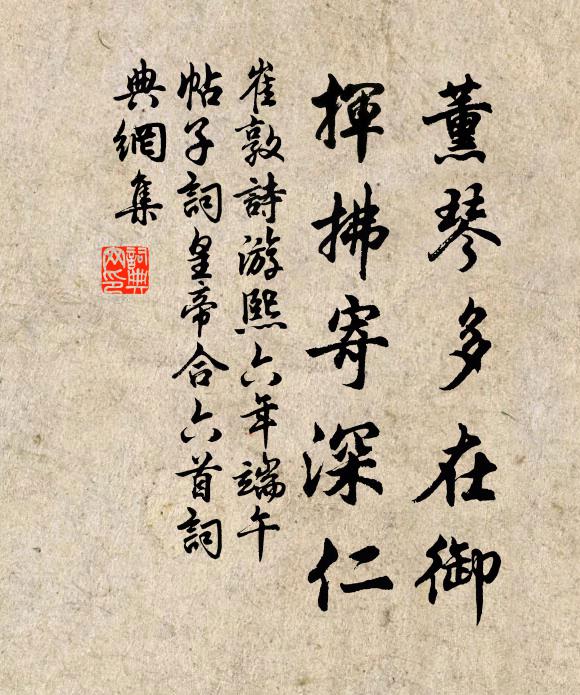 薰琴多在御
揮拂寄深仁
崔敦詩游熙六年端午
帖子詞皇帝合六首詞
典網集
詞典